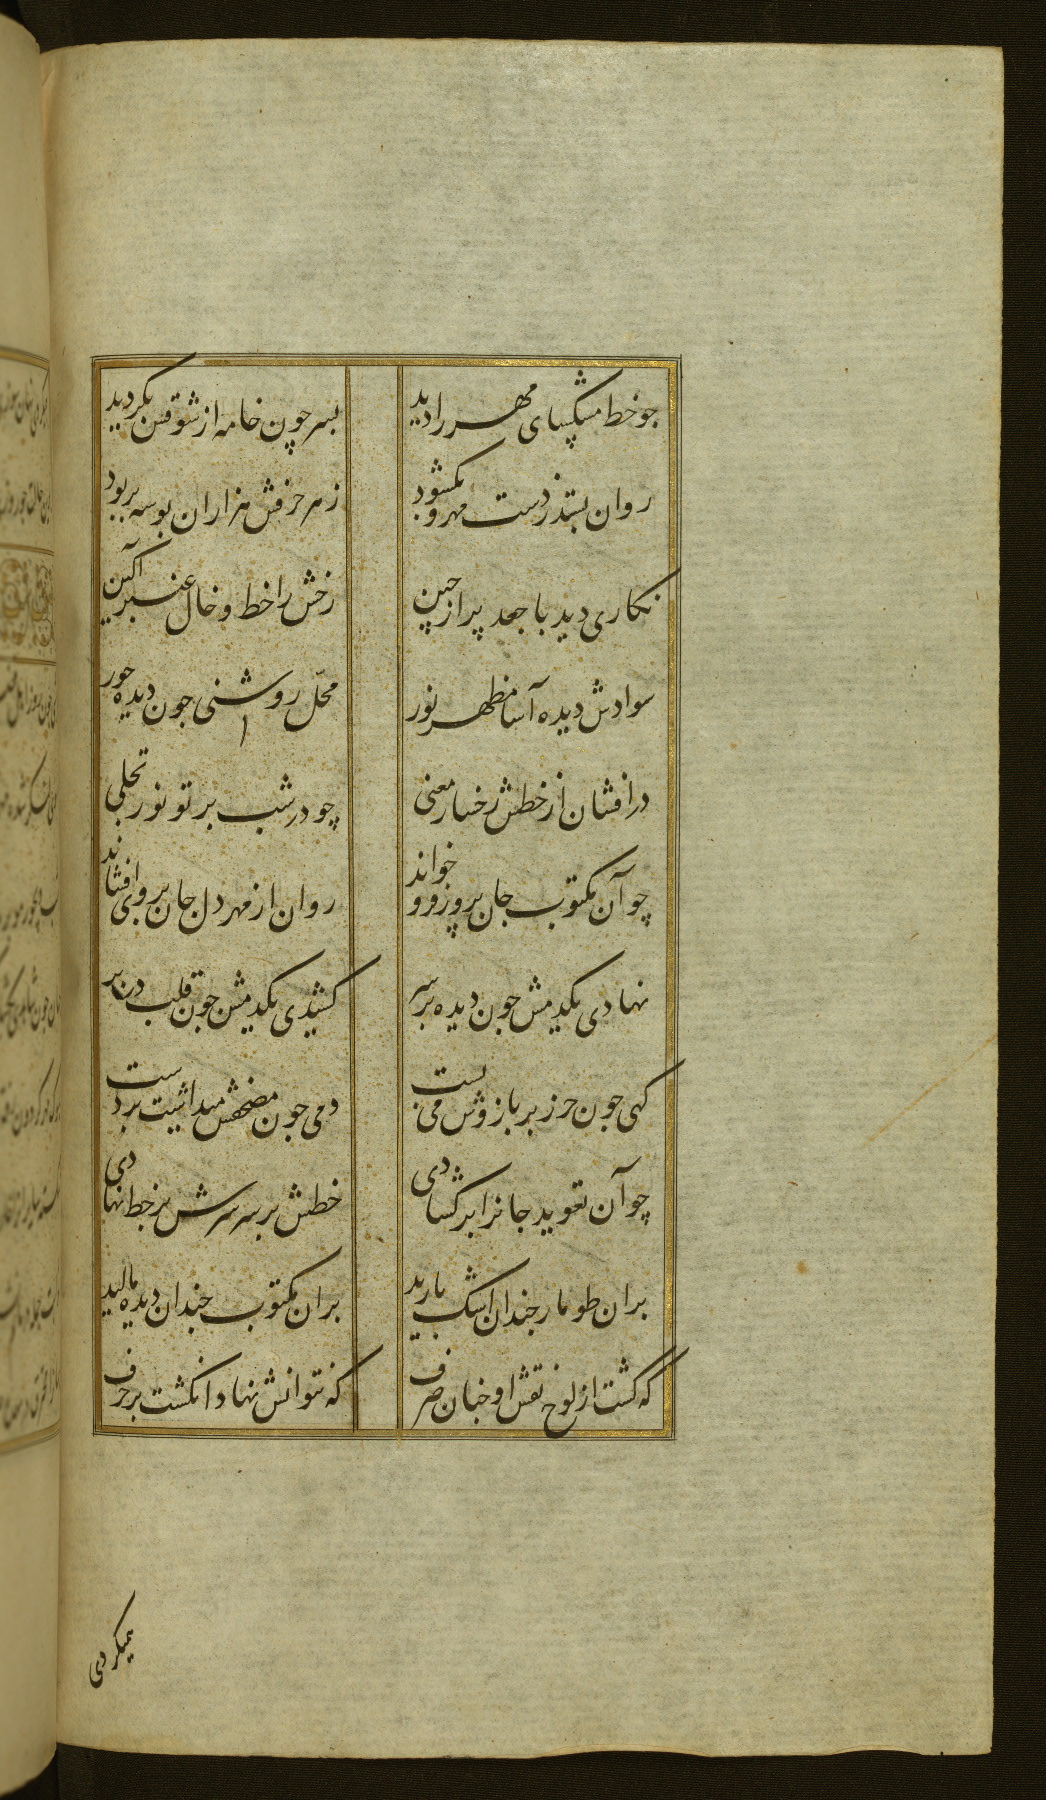 جو خط مشکسای مهر را دید بسر چون خامه از شوقش بکردید
روان بستد ز دست مهر و بکشود ز هر حرفش هزاران بوسه بربود
نکاری دید با جعد پر از چین رخش را خط و خال عنبر آکین
سوادش دیده آسا مظهر نور محلّ روشنی جون دیده حور
در افشان از خطش رخسار معنی چو در شب برتو نور تجلی
چو آن مکتوب جان برور فرو خواند روان از مهر دل جان بر وی افشاند
نهادی یکدمش جون دیده بر سر کشیدی یکدمش جون قلب در بر
کهی جون حرز بر بازوش می بست دمی جون مصحفش میداشت بر دست
چو آن تعویذ جانرا بر کشادی خطش بر سر سرش بر خط نهادی
بران طومار جندان اشک بارید بران مکتوب جندان دیده مالید
که کشت از لوح نقش او جنان صرف که نتوانش نهاد انکشت بر حرف
همیکردی